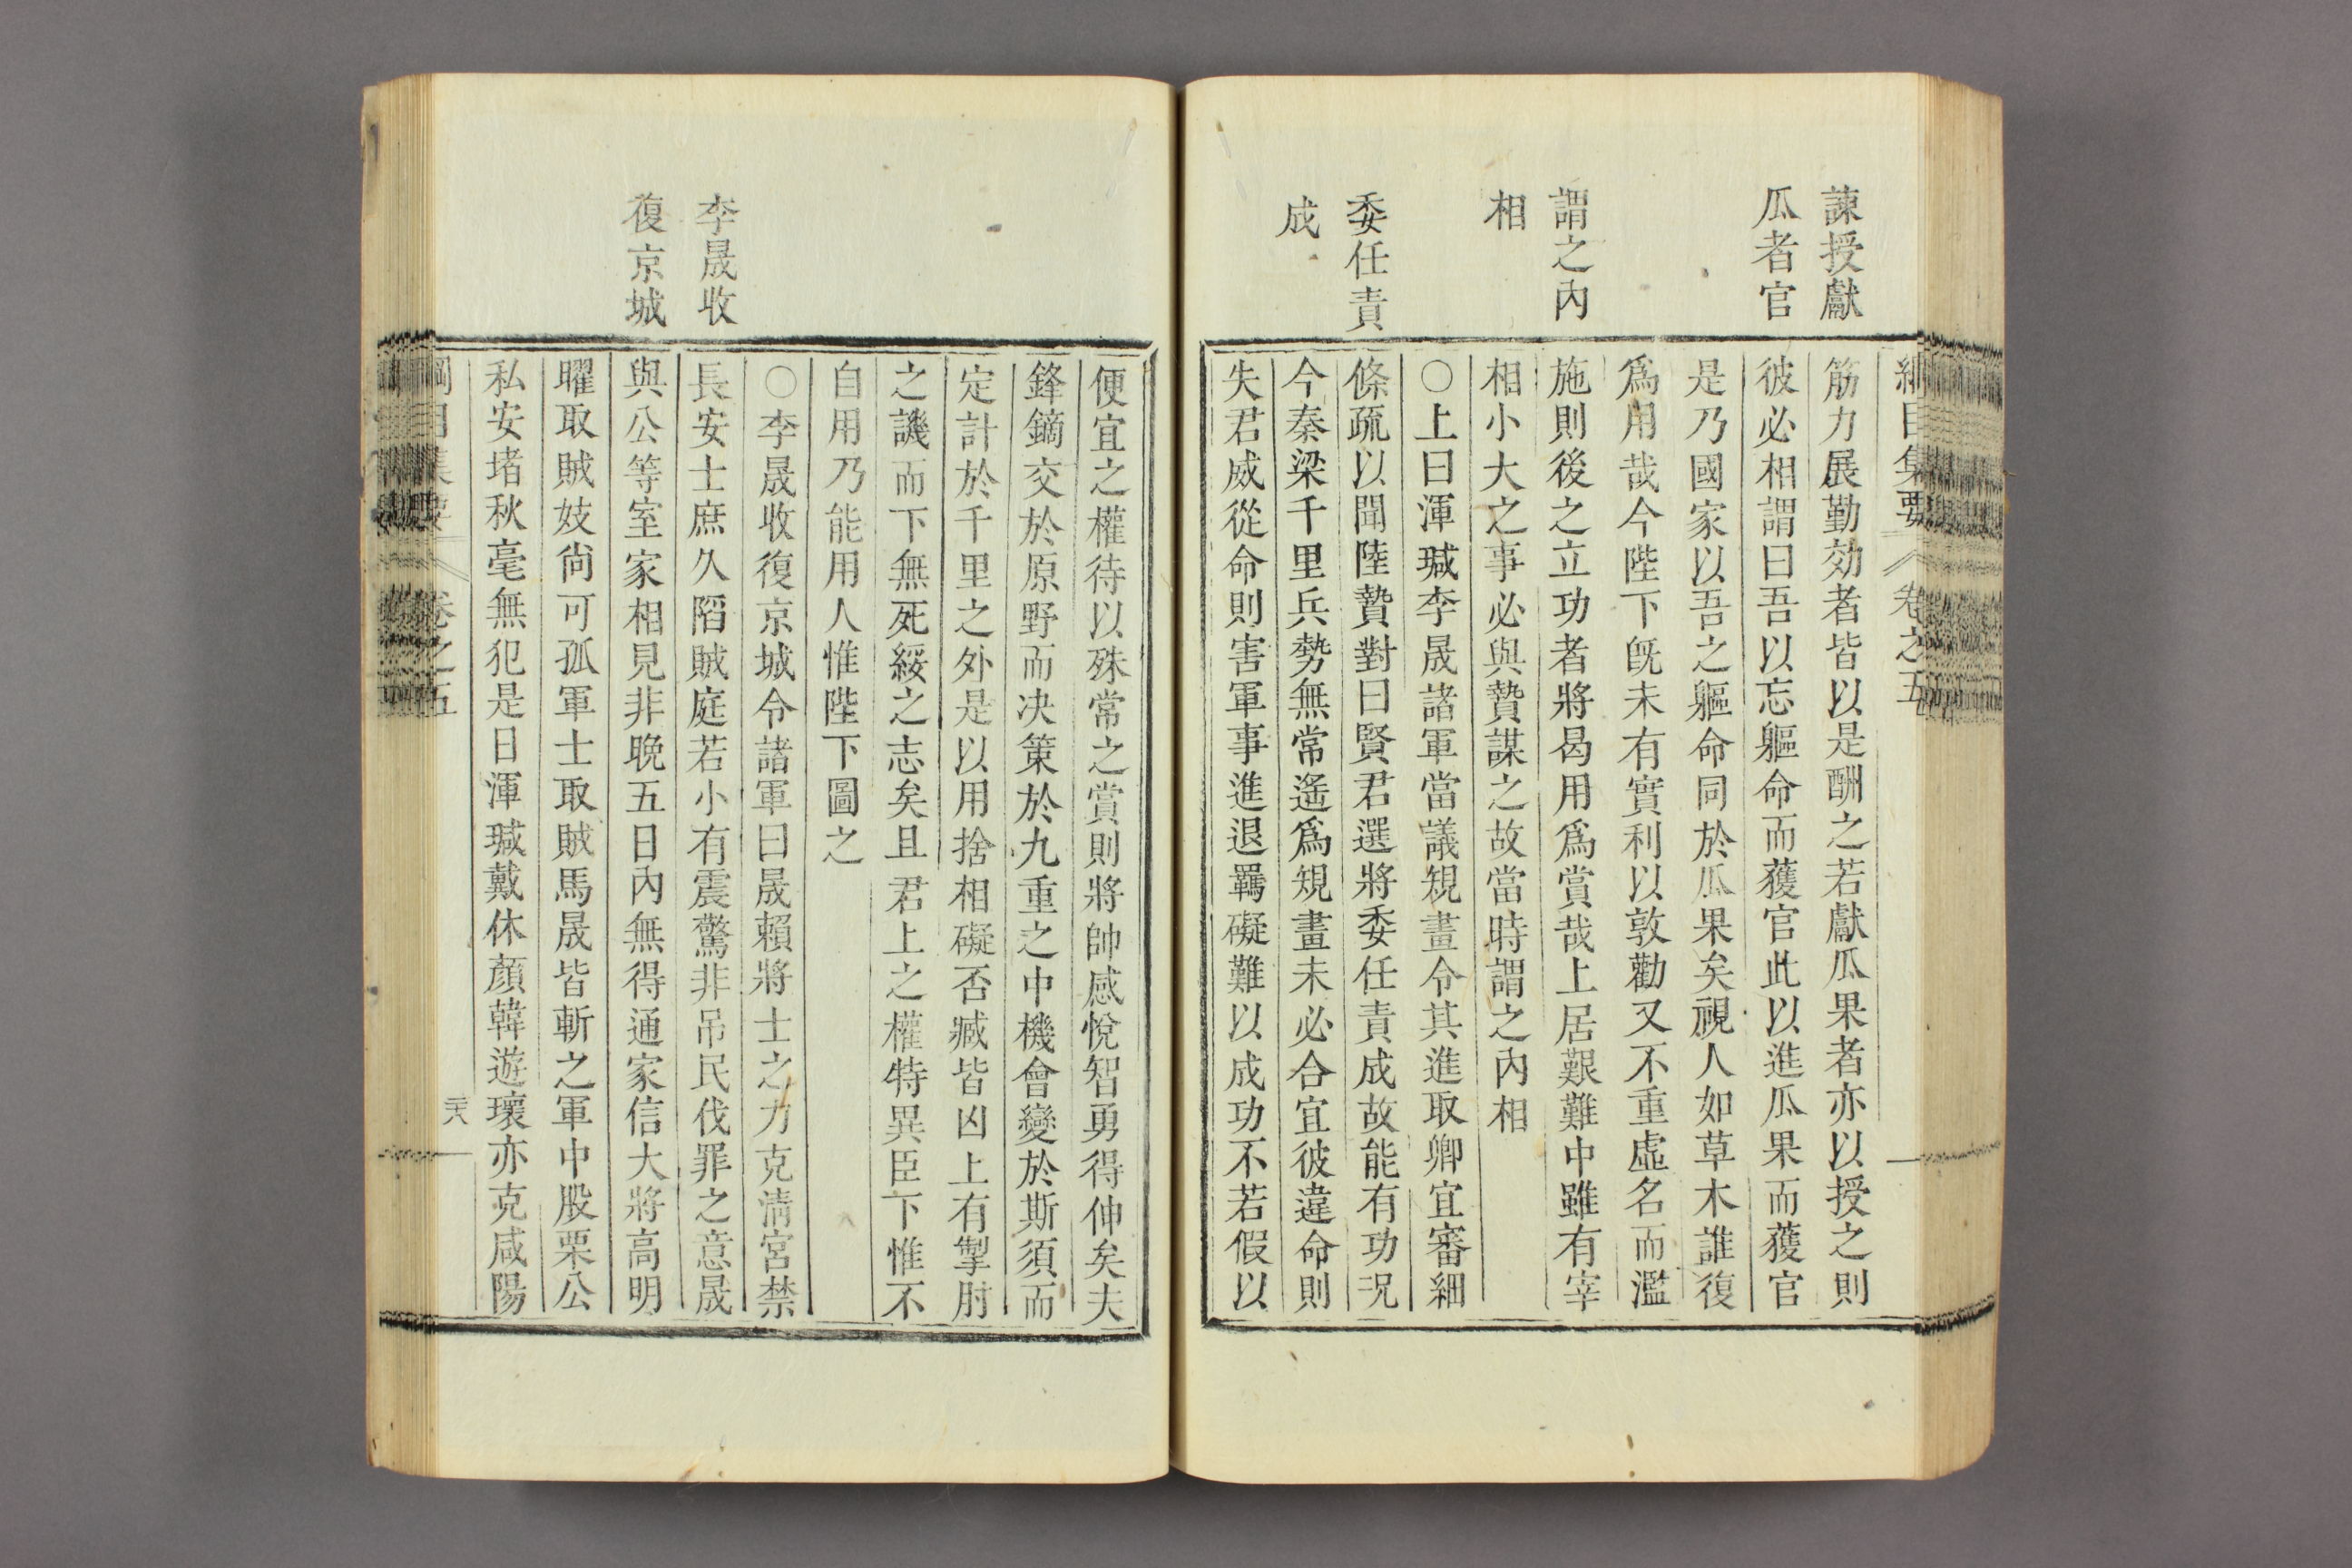 諫授獻
瓜者官
謂之內
相
委任責
成
綱目集要 卷之五
筋力展勤効者皆以是酬之若獻瓜果者亦以授之則
彼必相謂曰吾以忘軀命而獲官此以進瓜果而獲官
是乃國家以吾之軀命同於瓜果矣視人如草木誰復
爲用哉今陛下旣未有實利以敦勸又不重虛名而濫
施則後之立功者將曷用爲賞哉上居艱難中雖有宰
相小大之事必與贄謀之故當時謂之內相
○上曰渾瑊李晟諸軍當議規畫令其進取卿宜審細
條疏以聞陸贄對曰賢君選將委任責成故能有功况
今秦梁千里兵勢無常遙爲規畫未必合宜彼違命則
失君威從命則害軍事進退羈礙難以成功不若假以
李晟收
復京城
便宜之權待以殊常之賞則將帥感悅智勇得伸矣夫
鋒鏑交於原野而决策於九重之中機會變於斯須而
定計於千里之外是以用捨相礙否臧皆凶上有掣肘
之譏而下無死綏之志矣且君上之權特異臣下惟不
自用乃能用人惟陛下圖之
○李晟收復京城令諸軍曰晟賴將士之力克淸宮禁
長安士庶久陷賊庭若小有震驚非吊民伐罪之意晟
與公等室家相見非晩五日內無得通家信大將高明
曜取賊妓尙可孤軍士取賊馬晟皆斬之軍中股栗公
私安堵秋毫無犯是日渾瑊戴休顏韓遊瓌亦克咸陽
綱目集要 卷之五 二十八